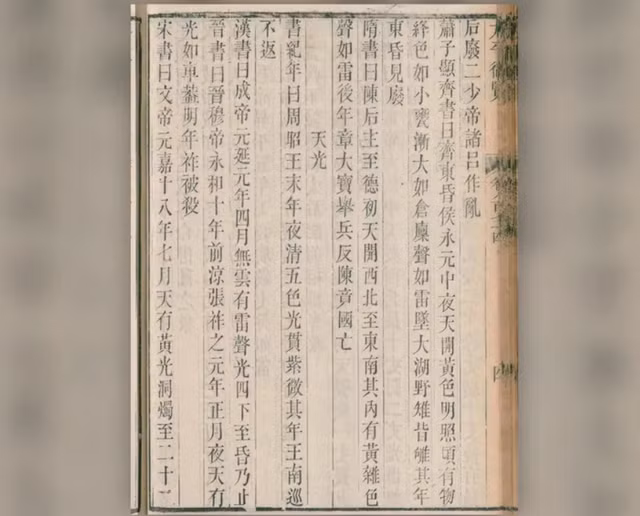 太平御覽
后廢二少帝諸吕作亂
蕭子顯齊書曰齊東昏侯永元中夜天開黃色明照頃有物
絳色如小甕漸大如倉廩聲如雷墜大湖野雉皆雊其年
東昏見廢
隋書曰陳后主至德初天開西北至東南其內有黃雜色
聲如雷後年章大寶舉兵反陳竟國亡
天光
書紀年曰周昭王末年夜清五色光貫紫微其年王南巡
不返
漢書曰成帝元延元年四月無雲有雷聲光四下至昏乃止
晉書曰晉穆帝永和十年前涼張祚之元年正月夜天有
光如車蓋明年祚被殺
宋書曰文帝元嘉十八年七月天有黃光洞燭至二十二